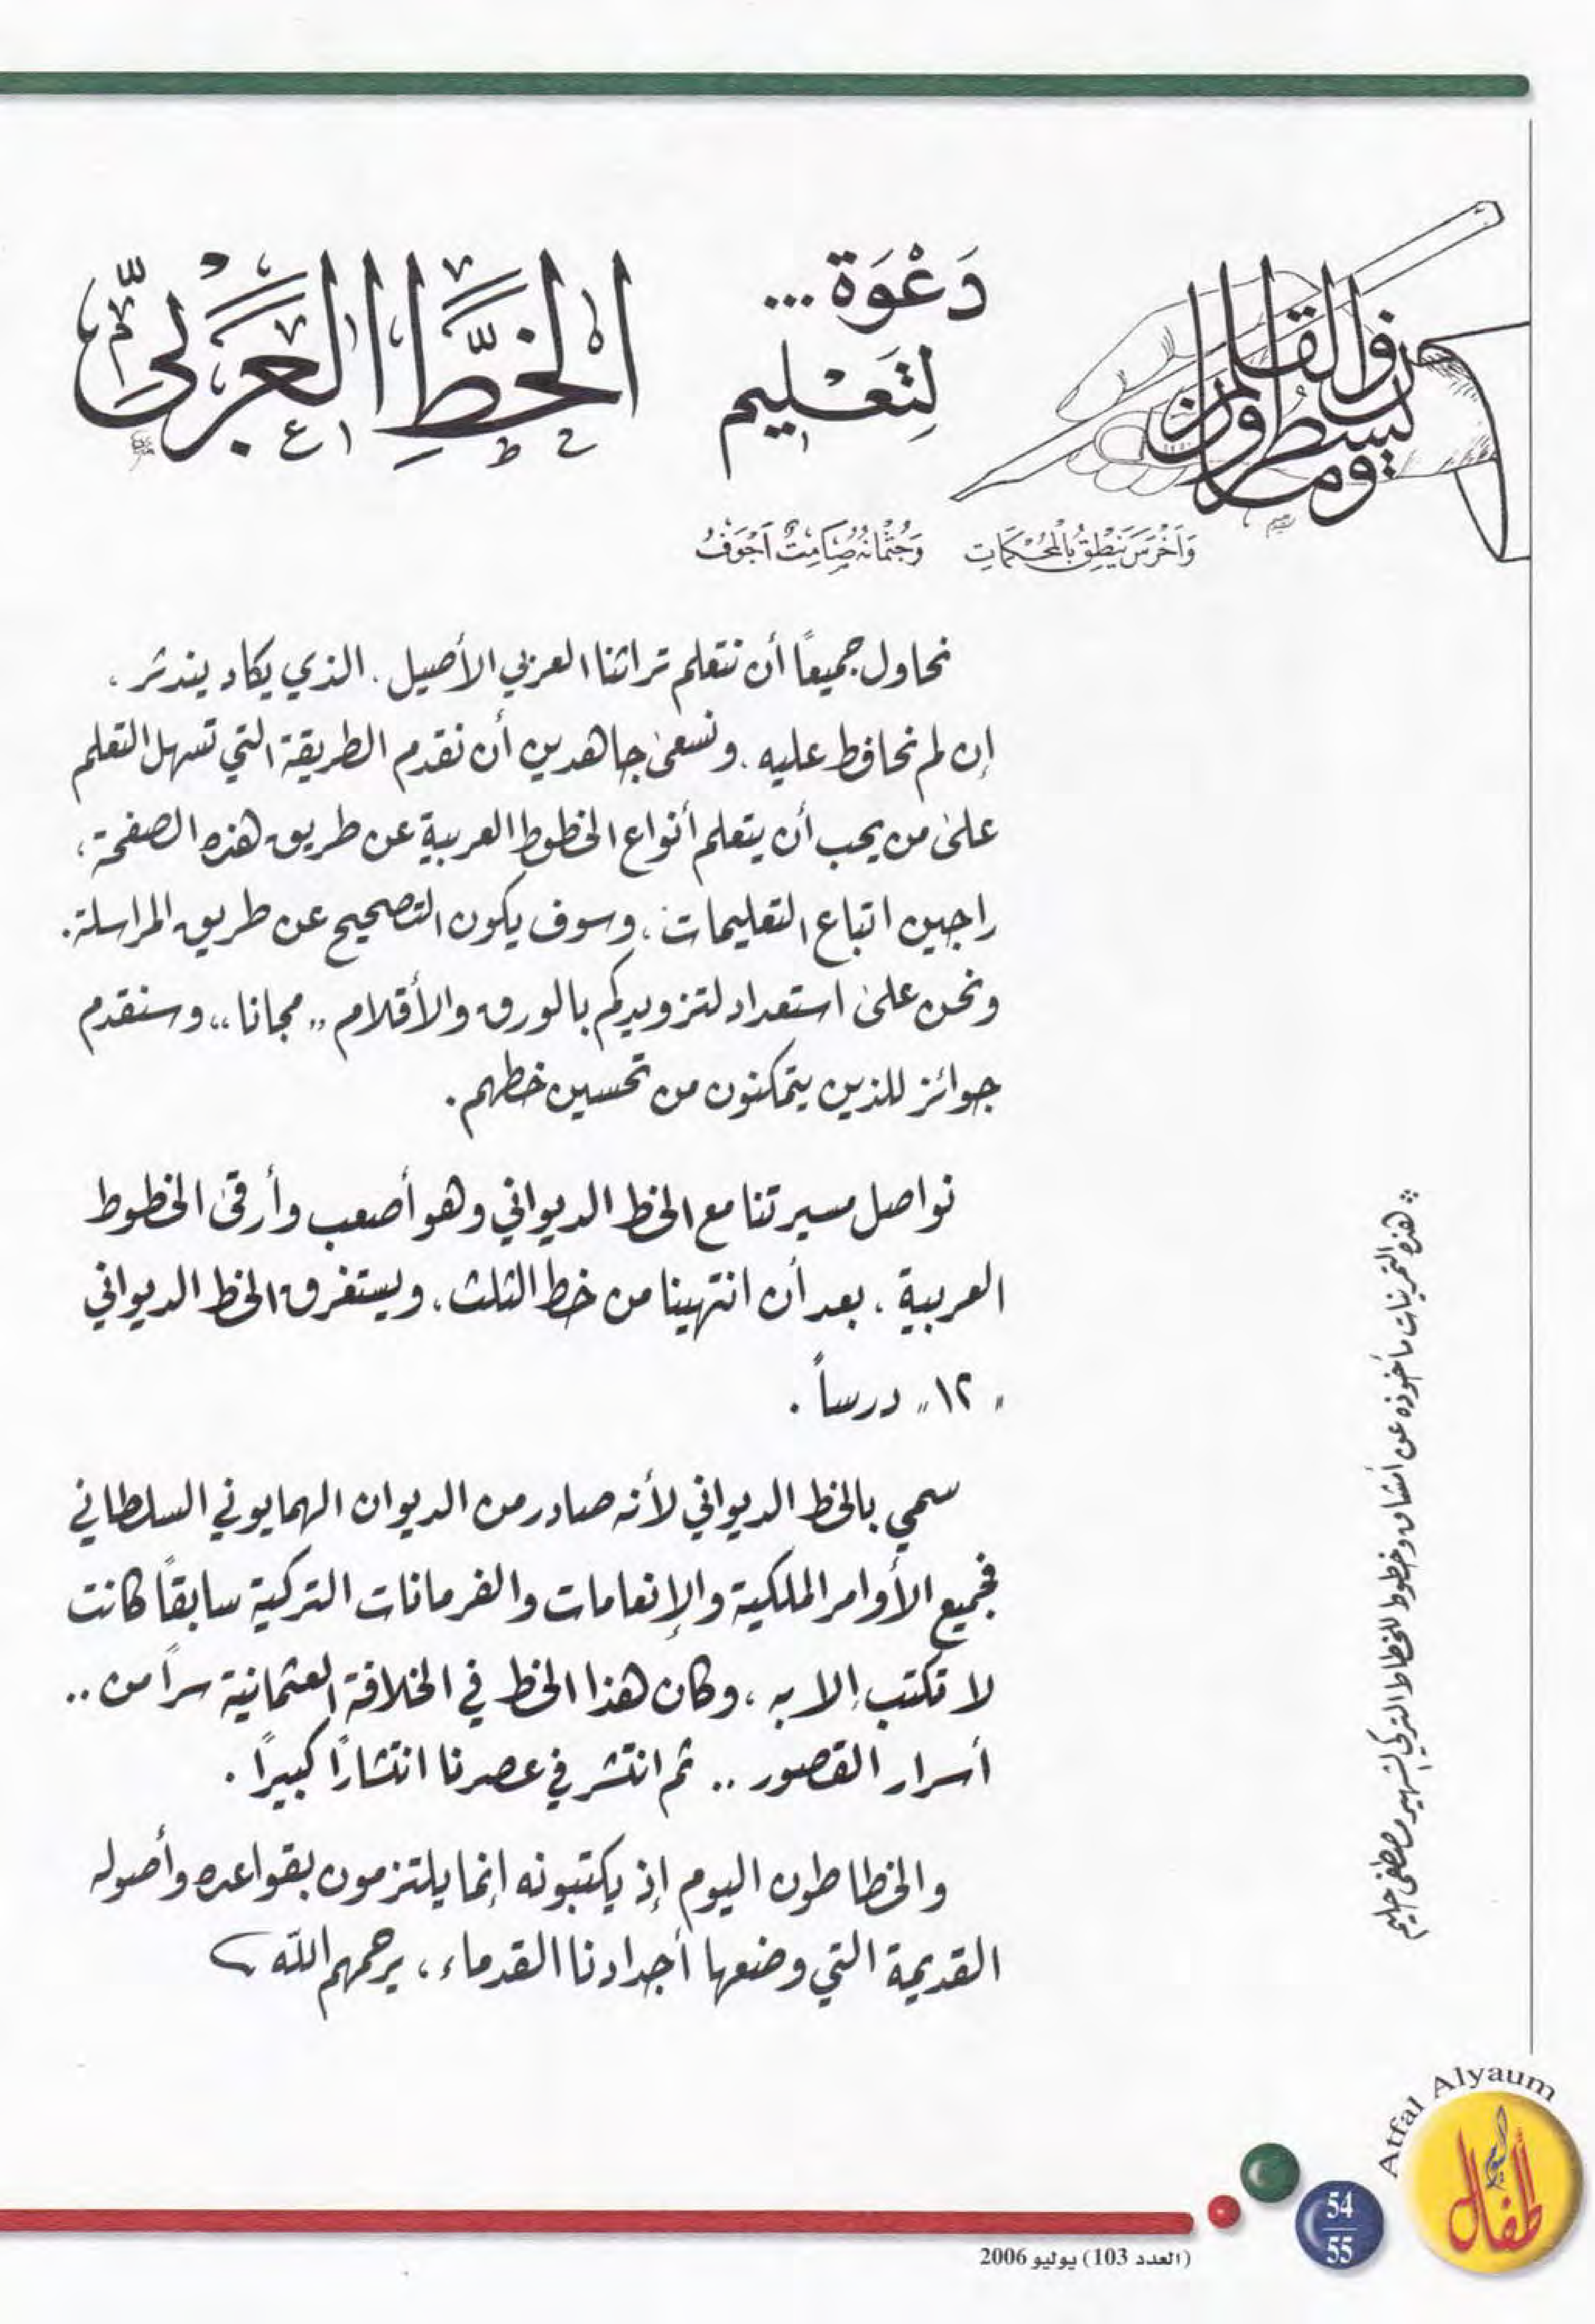 ن والقلم
وما يسطرون
دَعْوَة...
لِتَعْلِيم
الخَطِّ العَرَبيّ
وَأَخْرَسَ يَنْطِقُ بِالمُحْكَمَاتِ وَجُثْمَانُهُ صَامِتٌ أَجْوَفُ
نحاول جميعاً أن نتعلم تراثنا العربي الأصيل. الذي يكاد يندثر،
إن لم نحافظ عليه. ونسعى جاهدين أن نقدم الطريقة التي تسهل التعلم
على من يحب أن يتعلم أنواع الخطوط العربية عن طريق هذه الصفحة،
راجين اتباع التعليمات، وسوف يكون التصحيح عن طريق المراسلة.
ونحن على استعداد لتزويدكم بالورق والأقلام „مجانا„ وسنقدم
جوائز للذين يتمكنون من تحسين خطهم.
نواصل مسيرتنا مع الخط الديواني وهو أصعب وأرقى الخطوط
العربية، بعد أن انتهينا من خط الثلث، ويستغرق الخط الديواني
"١٢" درساً.
سمي بالخط الديواني لأنه صادر من الديوان الهمايوني السلطاني
فجميع الأوامر الملكية والإنعامات والفرمانات التركية سابقاً كانت
لا تكتب إلا به، وكان هذا الخط في الخلافة العثمانية سراً من ..
أسرار القصور .. ثم انتشر في عصرنا انتشاراً كبيراً.
والخطاطون اليوم إذ يكتبونه إنما يلتزمون بقواعده وأصوله
القديمة التي وضعها أجدادنا القدماء، يرحمهم الله
* هذه التمرينات مأخوذه عن أمشاق وخطوط للخطاط التركي الشهير مصطفى حليم
Atfal Alyaum
أطفال اليوم
54
55
(العدد 103) يوليو 2006